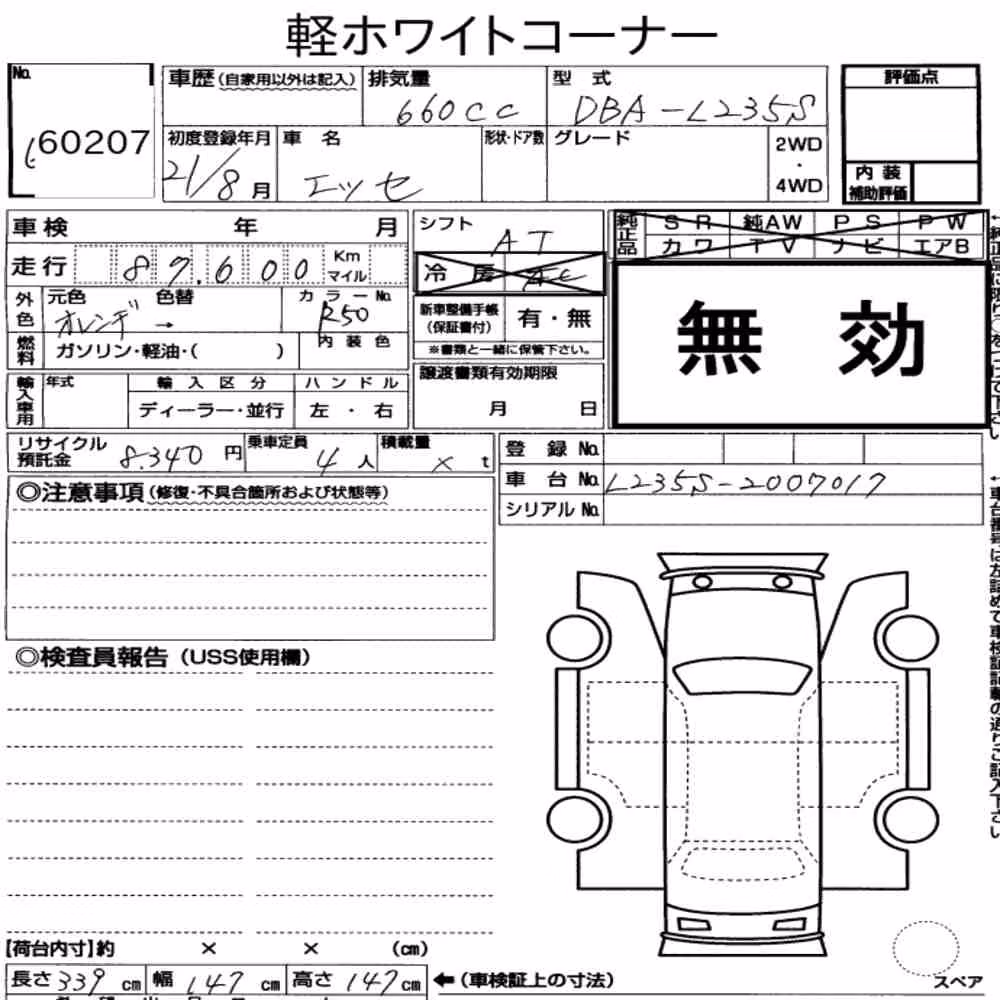 軽ホワイトコーナー
No.
60207
車歴(自家用以外は記入)
排気量
660cc
型 式
DBA-L235S
評価点
初度登録年月
21/8月
車 名
エッセ
形状・ドア数
グレード
2WD
・
4WD
内 装
補助評価
車検 年 月
シフト
AT
純正品
SR 純AW PS PW
カワ TV ナビ エアB
走行 87,600 Km マイル
冷 房 AC
外色
元色 色替
オレンヂ →
カラーNo.
R50
新車整備手帳
(保証書付)
有・無
※書類と一緒に保管下さい。
無 効
燃料
ガソリン・軽油・( )
内装色
輸入車用
年式
輸入区分
ディーラー・並行
ハンドル
左・右
譲渡書類有効期限
月 日
リサイクル
預託金
8.340円
乗車定員
4人
積載量
×t
登 録 No.
車 台 No. L235S-2007017
シリアル No.
◎注意事項(修復・不具合箇所および状態等)
◎検査員報告(USS使用欄)
【荷台内寸】約 × × (cm)
長さ339cm 幅147cm 高さ147cm ←(車検証上の寸法)
スペア